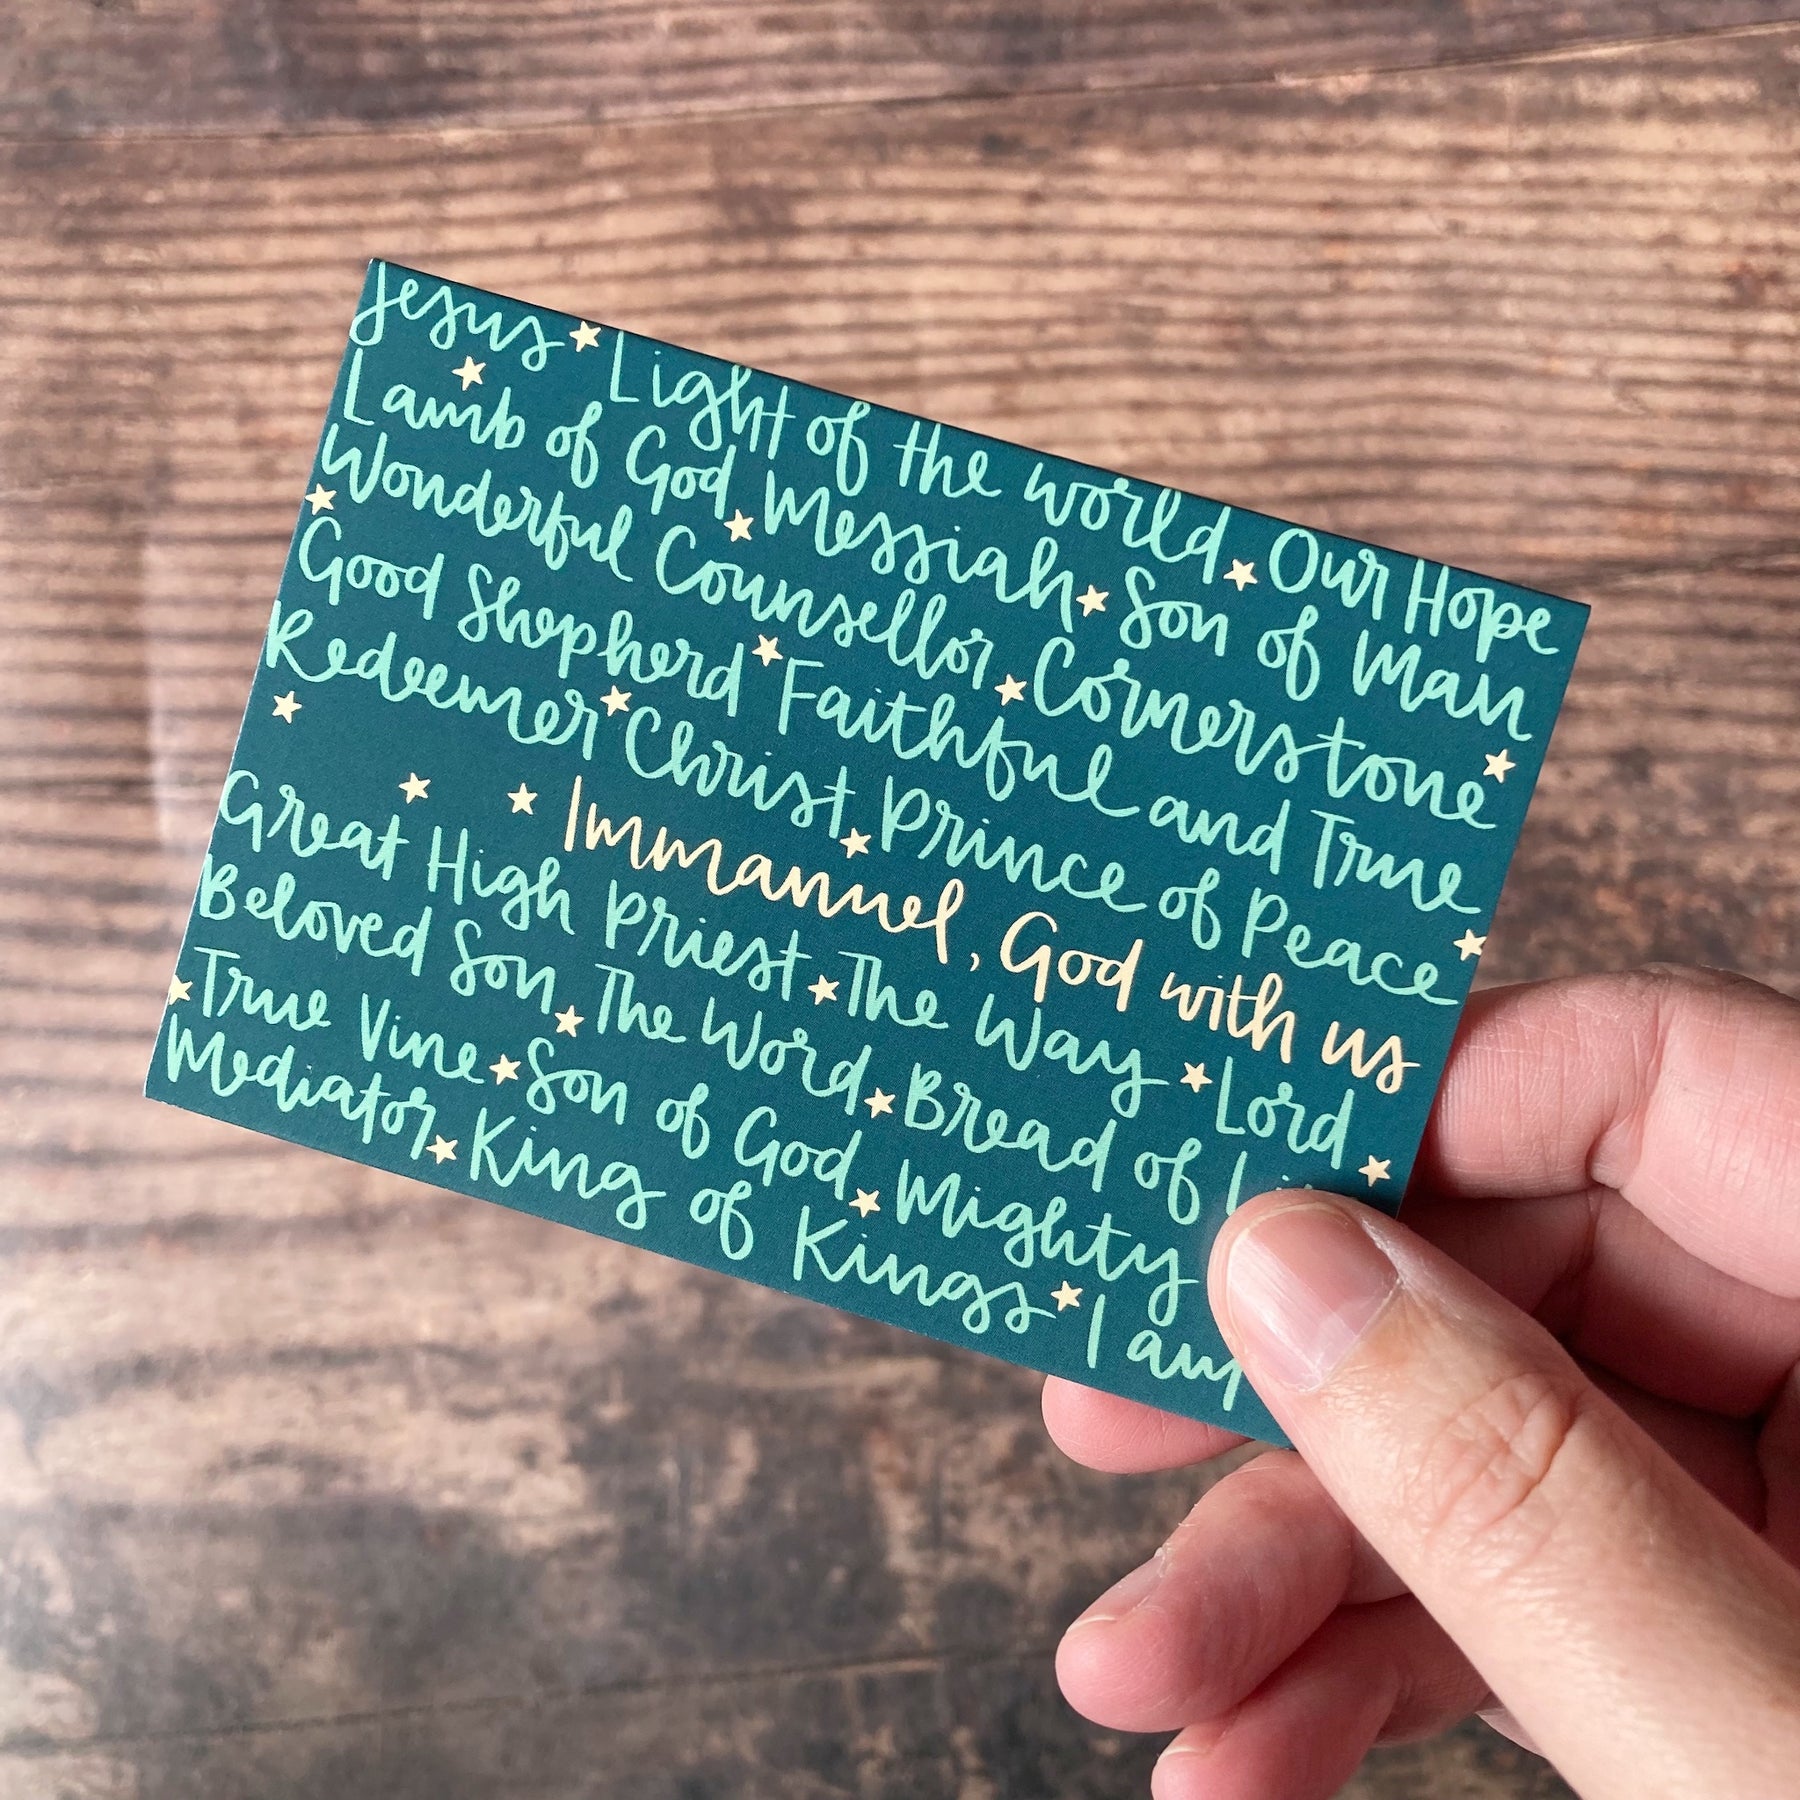 Jesus Light of the world Our Hope
Lamb of God Messiah Son of Man
Wonderful Counsellor Cornerstone
Good Shepherd Faithful and True
Redeemer Christ Prince of Peace
Immanuel, God with us
Great High Priest The Way Lord
Beloved Son The Word Bread of
True Vine Son of God Mighty
Mediator King of Kings I am